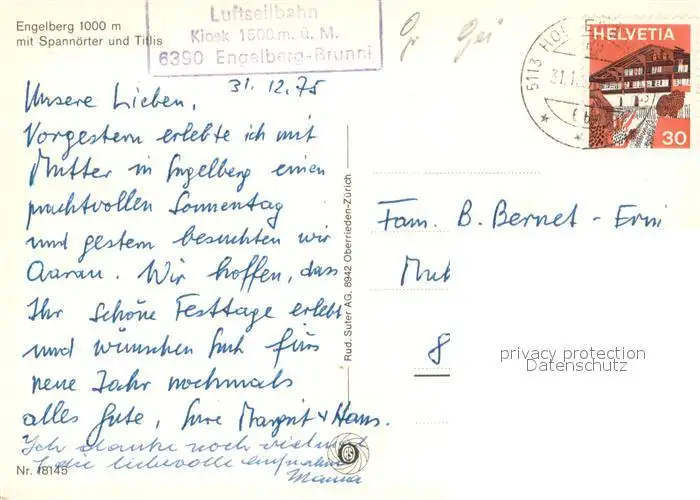 Engelberg 1000 m
mit Spannörter und Titlis
Luftseilbahn
Kiosk 1600 m. ü. M.
6390 Engelberg-Brunni
5113 HOL
31.1
HELVETIA
30
31. 12. 75
Unsere Lieben,
Vorgestern erlebte ich mit
Mutter in Engelberg einen
prachtvollen Sonnentag
und gestern besuchten wir
Aarau. Wir hoffen, dass
Ihr schöne Festtage erlebt
und wünschen Euch fürs
neue Jahr nochmals
alles Gute, Eure Margrit + Hans.
Ich danke noch vielmal
liebevolle
Mama
Nr. 18145
Rud. Suter AG, 8942 Oberrieden-Zürich
Fam. B. Bernet - Erni
8
privacy protection
Datenschutz